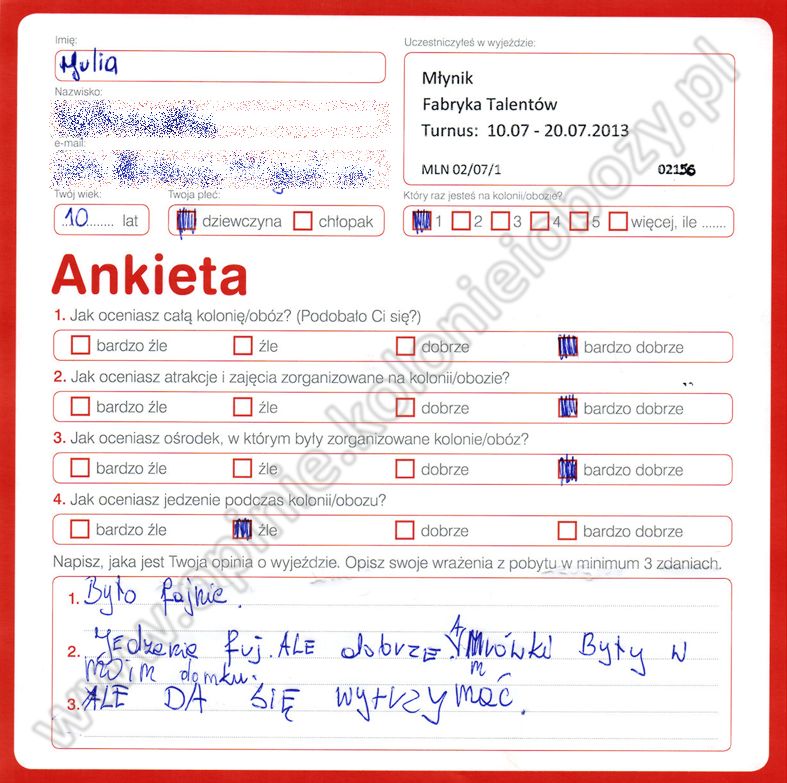 Imię:
Julia
Uczestniczyłeś w wyjeździe:
Młynik
Fabryka Talentów
Turnus: 10.07 - 20.07.2013
MLN 02/07/1 02156
Nazwisko:
e-mail:
Twój wiek: Twoja płeć: Który raz jesteś na kolonii/obozie?
10 lat dziewczyna chłopak 1 2 3 4 5 więcej, ile .......
Ankieta
1. Jak oceniasz całą kolonię/obóz? (Podobało Ci się?)
bardzo źle źle dobrze bardzo dobrze
2. Jak oceniasz atrakcje i zajęcia zorganizowane na kolonii/obozie?
bardzo źle źle dobrze bardzo dobrze
3. Jak oceniasz ośrodek, w którym były zorganizowane kolonie/obóz?
bardzo źle źle dobrze bardzo dobrze
4. Jak oceniasz jedzenie podczas kolonii/obozu?
bardzo źle źle dobrze bardzo dobrze
Napisz, jaka jest Twoja opinia o wyjeździe. Opisz swoje wrażenia z pobytu w minimum 3 zdaniach.
1. Było fajnie.
2. Jedzenie fuj. ALE dobrze. Mrówki Były w
moim domku.
3. ALE DA SIĘ wytrzymać.
www.opinie.kolonieiobozy.pl